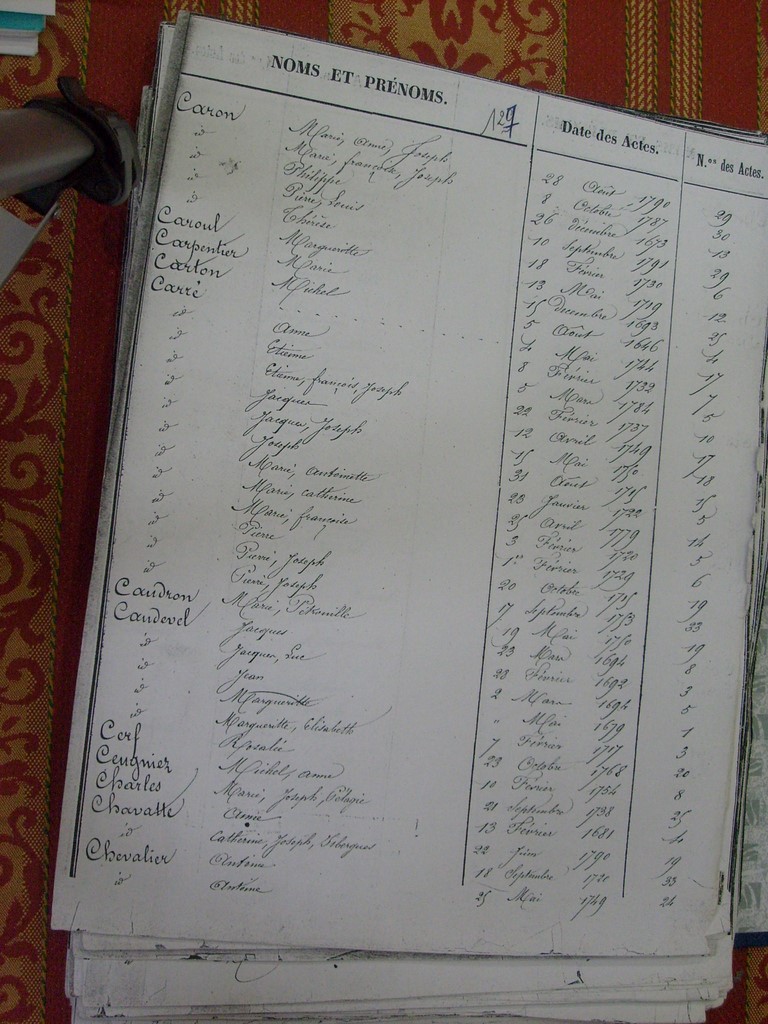 NOMS ET PRÉNOMS. 127 Date des Actes. N.os des Actes.
Caron Marie, Anne, Joseph 28 Août 1790 29
id Marie, françoise, Joseph 8 Octobre 1787 30
id Philippe 26 Décembre 1673 13
id Pierre, Louis 10 Septembre 1791 29
id Thérèse 18 Février 1730 6
Caroul Margueritte 13 Mai 1719 12
Carpentier Marie 15 Decembre 1693 25
Carton Michel 5 Août 1646 4
Carré 4 Mai 1744 17
id Anne 8 Février 1732 7
id Etienne 5 Mars 1784 5
id Etienne, françois, Joseph 22 Février 1737 10
id Jacques 12 Avril 1749 17
id Jacques, Joseph 15 Mai 1750 18
id Joseph 31 Août 1715 15
id Marie, Antoinette 23 Janvier 1722 5
id Marie, catherine 25 Avril 1779 14
id Marie, françoise 3 Février 1720 5
id Pierre 1er Février 1729 6
id Pierre, Joseph 20 Octobre 1715 19
id Pierre, Joseph 17 Septembre 1753 33
Caudron Marie, Pétronille 19 Mai 1750 19
Caudevel Jacques 23 Mars 1694 8
id Jacques, Luc 28 Février 1692 3
id Jean 2 Mars 1694 5
id Margueritte " Mai 1679 1
id Margueritte, Elisabeth 7 Février 1717 3
Cerf Rosalie 23 Octobre 1768 20
Ceugniez Michel, anne 10 Février 1754 8
Charles Marie, Joseph, Pélagie 21 Septembre 1738 25
Chavatte Anne 13 Février 1681 4
id Catherine, Joseph, 22 Juin 1790 19
Chevalier Antoine 18 Septembre 1720 33
id Antoine 25 Mai 1749 24